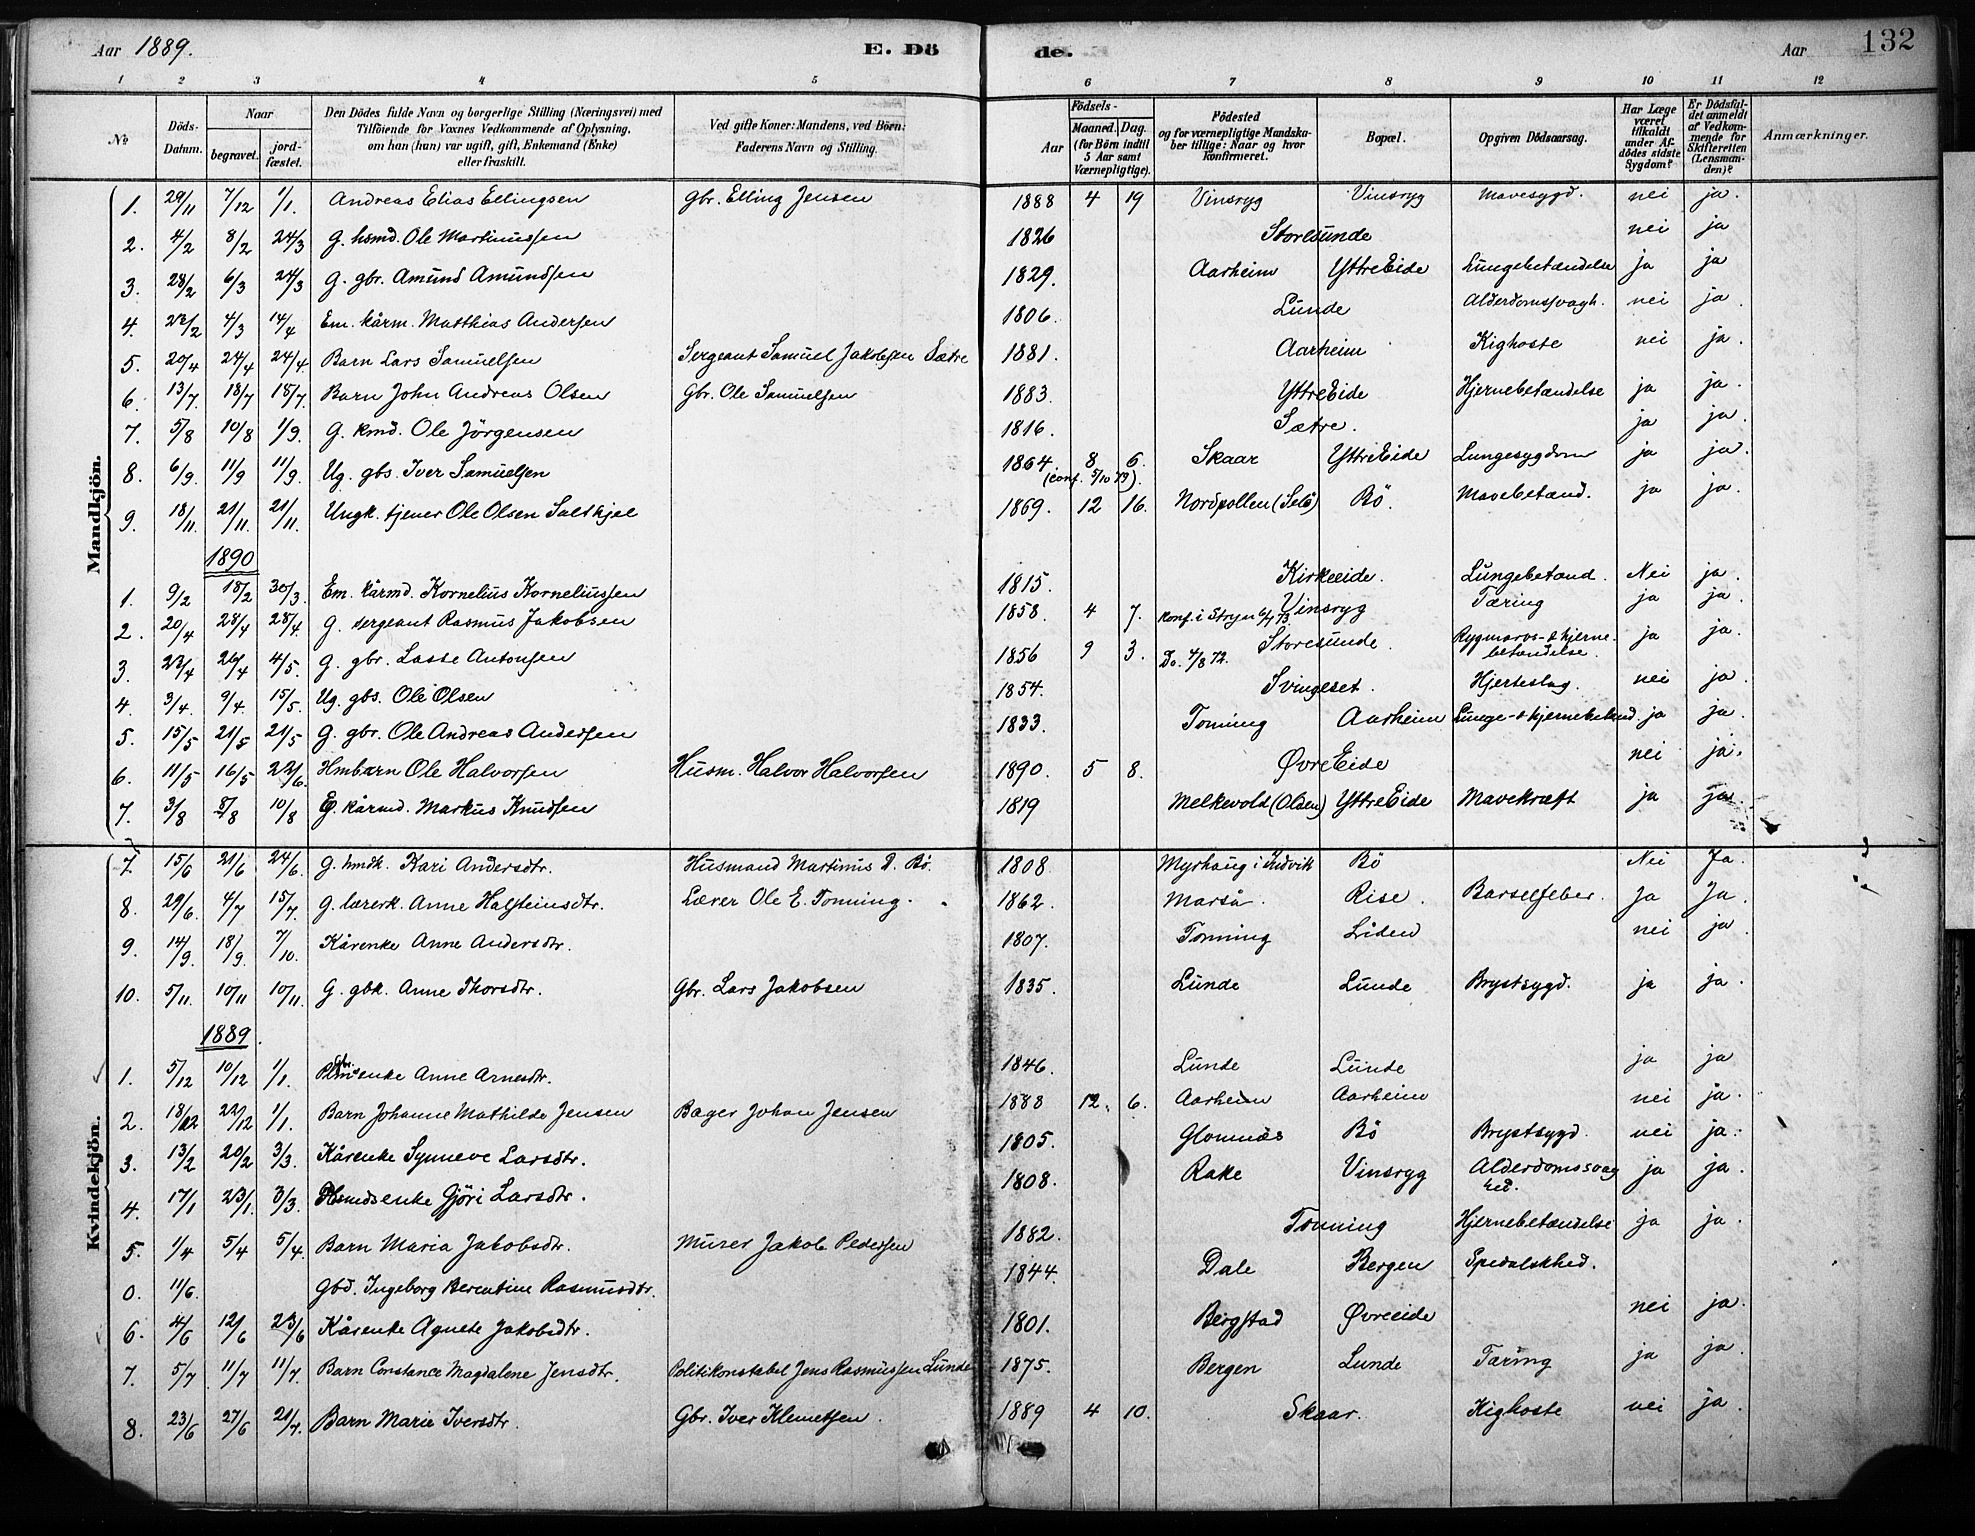 Aar 1889. E. Dö de. Aar 132
1 2 3 4 5 6 7 8 9 10 11 12
No Döds-Datum. Naar begravet. jord-fæstet. Den Dödes fulde Navn og borgerlige Stilling (Næringsvei) med Tilföiende for Voxnes Vedkommende af Oplysning, om han (hun) var ugift, gift, Enkemand (Enke) eller fraskilt. Ved gifte Koner: Mandens, ved Börn: Faderens Navn og Stilling. Födsels- Aar Maaned. Dag. (for Börn indtil 5 Aar samt Værnepligtige). Födested og for værnepligtige Mandska-ber tillige: Naar og hvor konfirmeret. Bopæl. Opgiven Dödsaarsag. Har Læge været tilkaldt under Af-dödes sidste Sygdom? Er Dödsfal-det anmeldt af Vedkom-mende for Skifteretten (Lensman-den)? Anmærkninger.
Mandkjön.
1. 29/11 7/12 1/1. Andreas Elias Ellingsen Gbr. Elling Jensen 1888 4 19 Vinsryg Vinsryg Mavesygd. nei ja.
2. 4/2 8/2 24/3 G. hsmd. Ole Martinussen 1826 Storesunde nei ja
3. 28/2 6/3 24/3 G. gbr. Amund Amundsen 1829. Aarheim Yttre Eide Lungebetændelse ja ja
4. 22/2 4/3 14/4 Em. kårm. Matthias Andersen 1806. Lunde Alderdomssvagh. nei ja.
5. 20/4 24/4 24/4 Barn Lars Samuelsen Sergeant Samuel Jakobsen Sætre 1881. Aarheim Kighoste nei ja.
6. 13/7 18/7 18/7. Barn John Andreas Olsen Gbr. Ole Samuelsen 1883. Yttre Eide Hjernebetændelse ja ja.
7. 5/8 10/8 1/9. G. kmd. Ole Jörgensen 1816. Sætre. ja ja.
8. 6/9. 11/9 11/9. Ug. gbs. Iver Samuelsen 1864. 8 6. Skaar Yttre Eide Lungesygdom ja ja.
(conf. 5/10 79).
9. 18/11. 21/11. 21/11. Ungk. tjener Ole Olsen Saltkjel 1869. 12 16. Nordpollen (Selö) Bö. Mavebetænd. ja ja.
1890
1. 9/2 18/2 30/3. Em. kårmd. Kornelius Korneliussen 1815. Kirkeeide. Lungebetænd. Nei ja.
2. 20/4 28/4 28/4. G. sergeant Rasmus Jakobsen 1858. 4 7. konf. i Stryn 6/7 73 Vinsryg Tæring ja ja.
3. 22/4 26/4 4/5. G. gbr. Lasse Antonsen 1856 9 3. Do. 4/8 72. Storesunde. Rygmarvs- & hjerne-betændelse. ja ja.
4. 3/4. 9/4. 15/5. Ug. gbs. Ole Olsen 1854. Svingeset. Hjerteslag. nei ja.
5. 15/5 21/5 21/5 G. gbr. Ole Andreas Andersen 1833. Tonning Aarheim Lunge- & hjernebetænd ja ja.
6. 11/5 16/5 22/6. Hmbarn Ole Halvorsen Husm. Halvor Halvorsen 1890. 5 8. Øvre Eide nei ja.
7. 3/8 8/8 10/8 kårmd. Markus Knudsen 1819 Melkevold (Olden) Yttre Eide Mavekræft ja ja.
Kvindekjön.
7. 15/6 21/6 24/6. G. hmdk. Kari Andersdtr. Husmand Martinus D. Bö. 1808. Myrhaug i Indvik Bö Nei Ja.
8. 29/6. 4/7 15/7. G. lærerk. Anne Halsteinsdtr. Lærer Ole E. Tonning. 1862. Marså. Rise. Barselfeber. Ja Ja.
9. 14/9. 18/9. 7/10. Kårenke Anne Andersdtr. 1807. Tonning Liden nei ja
10. 5/11. 10/11 10/11. G. gbk. Anne Thorsdtr. Gbr. Lars Jakobsen 1835. Lunde Lunde Brystsygd. ja ja.
1889.
1. 5/12 10/12 1/1. Gbr.enke Anne Arnesdtr. 1846. Lunde Lunde ja ja
2. 18/12 22/12 1/1. Barn Johanne Mathilde Jensen Bager Johan Jensen 1888 12. 6. Aarheim Aarheim nei ja.
3. 13/2 20/2 3/3. Kårenke Synneve Larsdtr. 1805. Glomnæs Bö Brystsygd. nei ja.
4. 17/1 23/1. 3/3. Hsmdsenke Gjöri Larsdtr. 1808. Rake Vinsryg Alderdomssvaghed. ja ja.
5. 1/4 5/4 5/4. Barn Maria Jakobsdtr. Murer Jakob Pedersen 1882. Tonning Hjernebetændelse ja ja.
0. 11/6. Gbd. Ingeborg Berentine Rasmusdtr. 1844. Dale Bergen Spedalskhed.
6. 4/6 12/6 23/6 Kårenke Agnete Jakobsdtr. 1801. Bergstad Øvreeide nei ja.
7. 5/7 11/7 11/7. Barn Constance Magdalene Jensdtr. Politikonstabel Jens Rasmussen Lunde 1875. Bergen Lunde Tæring ja ja.
8. 23/6 27/6 21/7. Barn Marie Iversdtr. Gbr. Iver Klemetsen. 1889 4 10. Skaar. Kighoste nei ja.